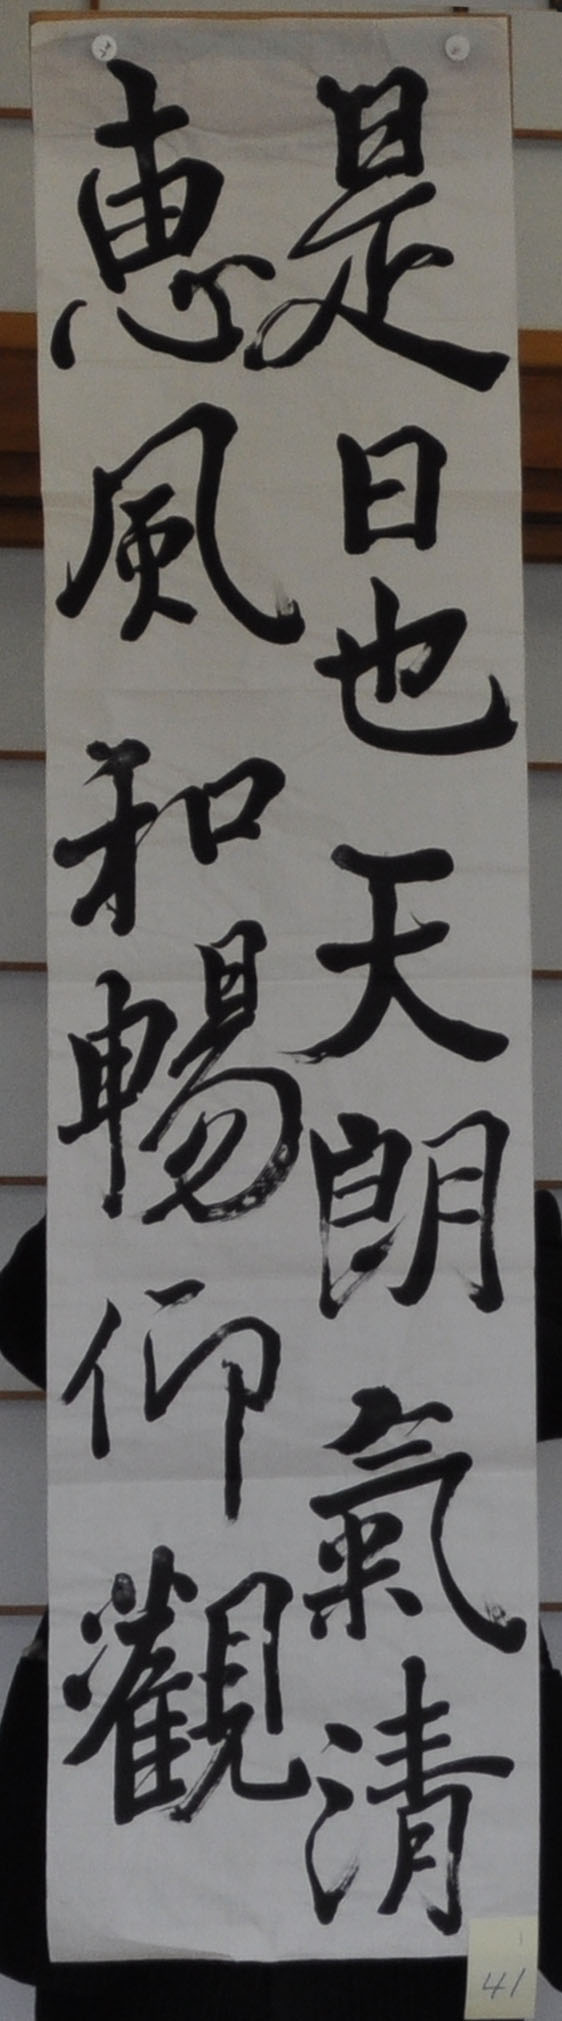 是日也天朗氣清
恵風和暢仰觀
41